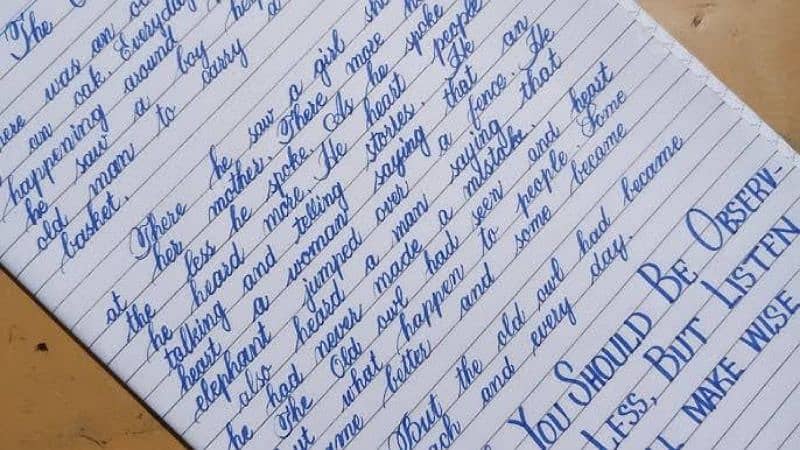 The
here was an
an oak. Everyday
happening around
he saw a boy
old man to carry a
basket.
There he saw a girl
at her mother. There more
the less he spoke. As he spoke
he heard more. He heart people
talking and telling stories. He
heart a woman saying that an
elephant jumped over a fence. He
also heard a man saying that
he had never made a mistake.
The Old owl had seen and heart
ut what happen to people. Some
ame better and some became
But the old owl had become
ach and every day.
YOU SHOULD BE OBSERV-
LESS, BUT LISTEN
LL MAKE WISE